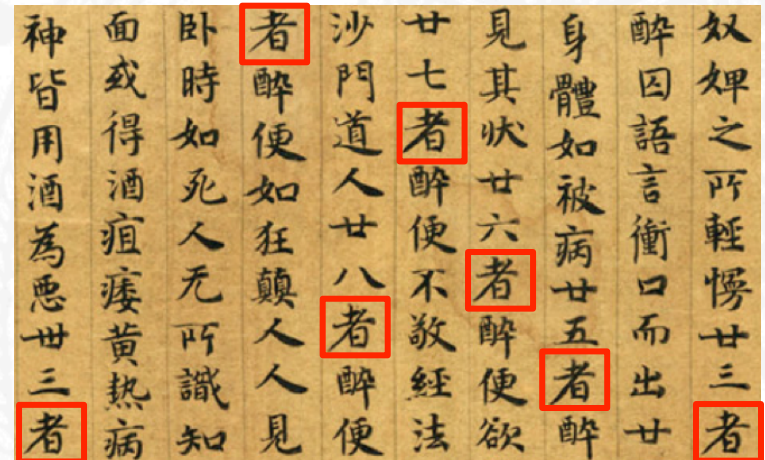 奴婢之所輕慢廿三者
醉因語言衝口而出廿
身體如被病廿五者醉
見其狀廿六者醉便欲
廿七者醉便不敬經法
沙門道人廿八者醉便
者醉便如狂顛人人見
卧時如死人无所識知
面或得酒疽痿黄热病
神皆用酒為悪丗三者